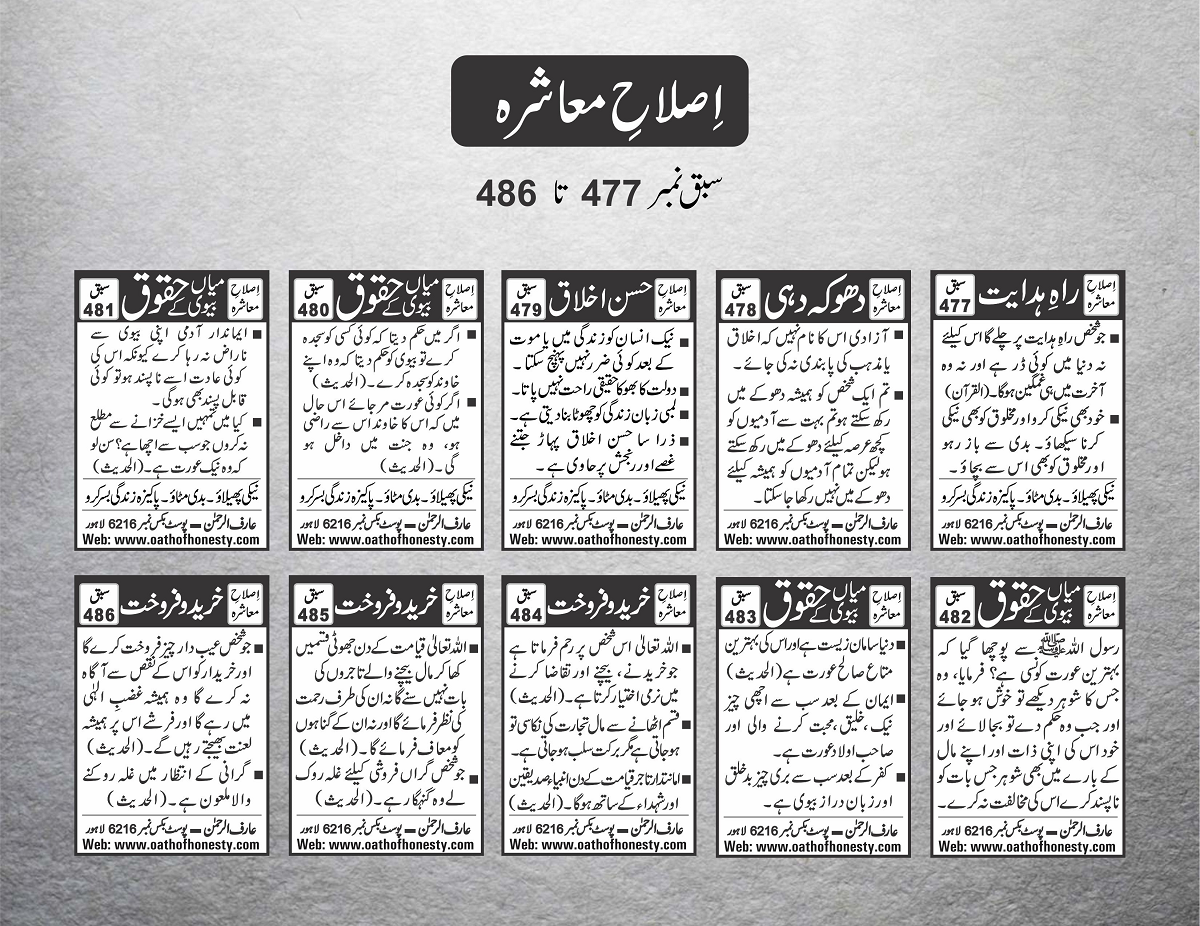 اِصلاحِ معاشرہ
سبق نمبر 477 تا 486
اِصلاحِ معاشرہ
راہِ ہدایت
سبق 477
■ جو شخص راہِ ہدایت پر چلے گا اس کیلئے
نہ دنیا میں کوئی ڈر ہے اور نہ وہ
آخرت میں ہی غمگین ہوگا۔ (القرآن)
■ خود بھی نیکی کرو اور مخلوق کو بھی نیکی
کرنا سیکھاؤ۔ بدی سے باز رہو
اور مخلوق کو بھی اس سے بچاؤ۔
نیکی پھیلاؤ۔ بدی مٹاؤ۔ پاکیزہ زندگی بسر کرو
عارف الرحمٰن – پوسٹ بکس نمبر 6216 لاہور
Web: www.oathofhonesty.com
اِصلاحِ معاشرہ
دھوکہ دہی
سبق 478
■ آزادی اس کا نام نہیں کہ اخلاق
یا مذہب کی پابندی نہ کی جائے۔
■ تم ایک شخص کو ہمیشہ دھوکے میں
رکھ سکتے ہو تم بہت سے آدمیوں کو
کچھ عرصہ کیلئے دھوکے میں رکھ سکتے
ہو لیکن تمام آدمیوں کو ہمیشہ کیلئے
دھوکے میں نہیں رکھا جا سکتا۔
عارف الرحمٰن – پوسٹ بکس نمبر 6216 لاہور
Web: www.oathofhonesty.com
اِصلاحِ معاشرہ
حسن اخلاق
سبق 479
■ نیک انسان کو زندگی میں یا موت
کے بعد کوئی ضرر نہیں پہنچ سکتا۔
■ دولت کا بھوکا حقیقی راحت نہیں پاتا۔
■ لمبی زبان زندگی کو چھوٹا بنا دیتی ہے۔
■ ذرا سا حسن اخلاق پہاڑ جتنے
غصے اور رنجش پر حاوی ہے۔
نیکی پھیلاؤ۔ بدی مٹاؤ۔ پاکیزہ زندگی بسر کرو
عارف الرحمٰن – پوسٹ بکس نمبر 6216 لاہور
Web: www.oathofhonesty.com
اِصلاحِ معاشرہ
میاں بیوی کے حقوق
سبق 480
■ اگر میں حکم دیتا کہ کوئی کسی کو سجدہ
کرے تو بیوی کو حکم دیتا کہ وہ اپنے
خاوند کو سجدہ کرے۔ (الحدیث)
■ اگر کوئی عورت مر جائے اس حال
میں کہ اس کا خاوند اس سے راضی
ہو، وہ جنت میں داخل ہو
گی۔ (الحدیث)
نیکی پھیلاؤ۔ بدی مٹاؤ۔ پاکیزہ زندگی بسر کرو
عارف الرحمٰن – پوسٹ بکس نمبر 6216 لاہور
Web: www.oathofhonesty.com
اِصلاحِ معاشرہ
میاں بیوی کے حقوق
سبق 481
■ ایماندار آدمی اپنی بیوی سے
ناراض نہ رہا کرے کیونکہ اس کی
کوئی عادت اسے ناپسند ہو تو کوئی
قابل پسند بھی ہوگی۔
■ کیا میں تمہیں ایسے خزانے سے مطلع
نہ کروں جو سب سے اچھا ہے؟ سن لو
کہ وہ نیک عورت ہے۔ (الحدیث)
نیکی پھیلاؤ۔ بدی مٹاؤ۔ پاکیزہ زندگی بسر کرو
عارف الرحمٰن – پوسٹ بکس نمبر 6216 لاہور
Web: www.oathofhonesty.com
اِصلاحِ معاشرہ
میاں بیوی کے حقوق
سبق 482
رسول اللہ ﷺ سے پوچھا گیا کہ
بہترین عورت کونسی ہے؟ فرمایا، وہ
جس کا شوہر دیکھے تو خوش ہو جائے
اور جب وہ حکم دے تو بجا لائے اور
خود اس کی اپنی ذات اور اپنے مال
کے بارے میں بھی شوہر جس بات کو
ناپسند کرے اس کی مخالفت نہ کرے۔
عارف الرحمٰن – پوسٹ بکس نمبر 6216 لاہور
Web: www.oathofhonesty.com
اِصلاحِ معاشرہ
میاں بیوی کے حقوق
سبق 483
■ دنیا سامان زیست ہے اور اس کی بہترین
متاع صالح عورت ہے (الحدیث)
■ ایمان کے بعد سب سے اچھی چیز
نیک، خلیق، محبت کرنے والی اور
صاحب اولاد عورت ہے۔
■ کفر کے بعد سب سے بری چیز بدخلق
اور زبان دراز بیوی ہے۔
عارف الرحمٰن – پوسٹ بکس نمبر 6216 لاہور
Web: www.oathofhonesty.com
اِصلاحِ معاشرہ
خرید و فروخت
سبق 484
■ اللہ تعالیٰ اس شخص پر رحم فرماتا ہے
جو خریدنے، بیچنے اور تقاضا کرنے
میں نرمی اختیار کرتا ہے۔ (الحدیث)
■ قسم اٹھانے سے مال تجارت کی نکاسی تو
ہو جاتی ہے مگر برکت سلب ہو جاتی ہے۔
■ امانتدار تاجر قیامت کے دن انبیاء صدیقین
اور شہداء کے ساتھ ہوگا۔ (الحدیث)
عارف الرحمٰن – پوسٹ بکس نمبر 6216 لاہور
Web: www.oathofhonesty.com
اِصلاحِ معاشرہ
خرید و فروخت
سبق 485
■ اللہ تعالیٰ قیامت کے دن جھوٹی قسمیں
کھا کر مال بیچنے والے تاجروں کی
بات نہیں سنے گا نہ ان کی طرف رحمت
کی نظر فرمائے گا اور نہ ان کے گناہوں
کو معاف فرمائے گا۔ (الحدیث)
■ جو شخص گراں فروشی کیلئے غلہ روک
لے وہ گنہگار ہے۔ (الحدیث)
عارف الرحمٰن – پوسٹ بکس نمبر 6216 لاہور
Web: www.oathofhonesty.com
اِصلاحِ معاشرہ
خرید و فروخت
سبق 486
■ جو شخص عیب دار چیز فروخت کرے گا
اور خریدار کو اس کے نقص سے آگاہ
نہ کرے گا وہ ہمیشہ غضبِ الٰہی
میں رہے گا اور فرشے اس پر ہمیشہ
لعنت بھیجتے رہیں گے۔ (الحدیث)
■ گرانی کے انتظار میں غلہ روکنے
والا ملعون ہے۔ (الحدیث)
عارف الرحمٰن – پوسٹ بکس نمبر 6216 لاہور
Web: www.oathofhonesty.com